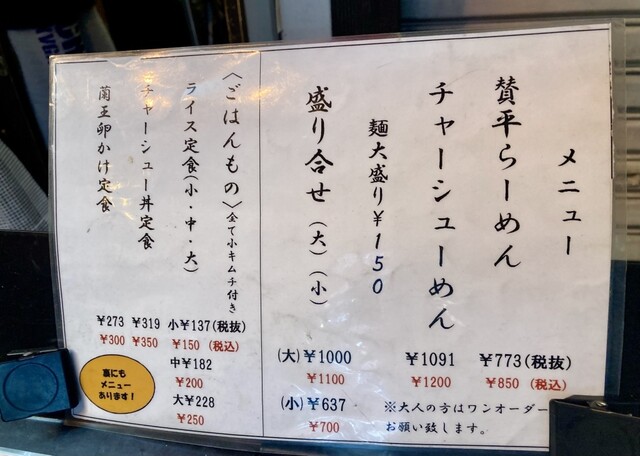 メニュー
賛平らーめん
¥773(税抜)
¥850 (税込)
チャーシューめん
¥1091
¥1200
麺大盛り¥150
盛り合せ(大)(小)
(大)¥1000
¥1100
(小)¥637
¥700
※大人の方はワンオーダー
お願い致します。
〈ごはんもの〉全て小キムチ付き
ライス定食(小・中・大)
小¥137(税抜)
¥150 (税込)
中¥182
¥200
大¥228
¥250
チャーシュー丼定食
¥319
¥350
蘭王卵かけ定食
¥273
¥300
裏にも
メニュー
あります!